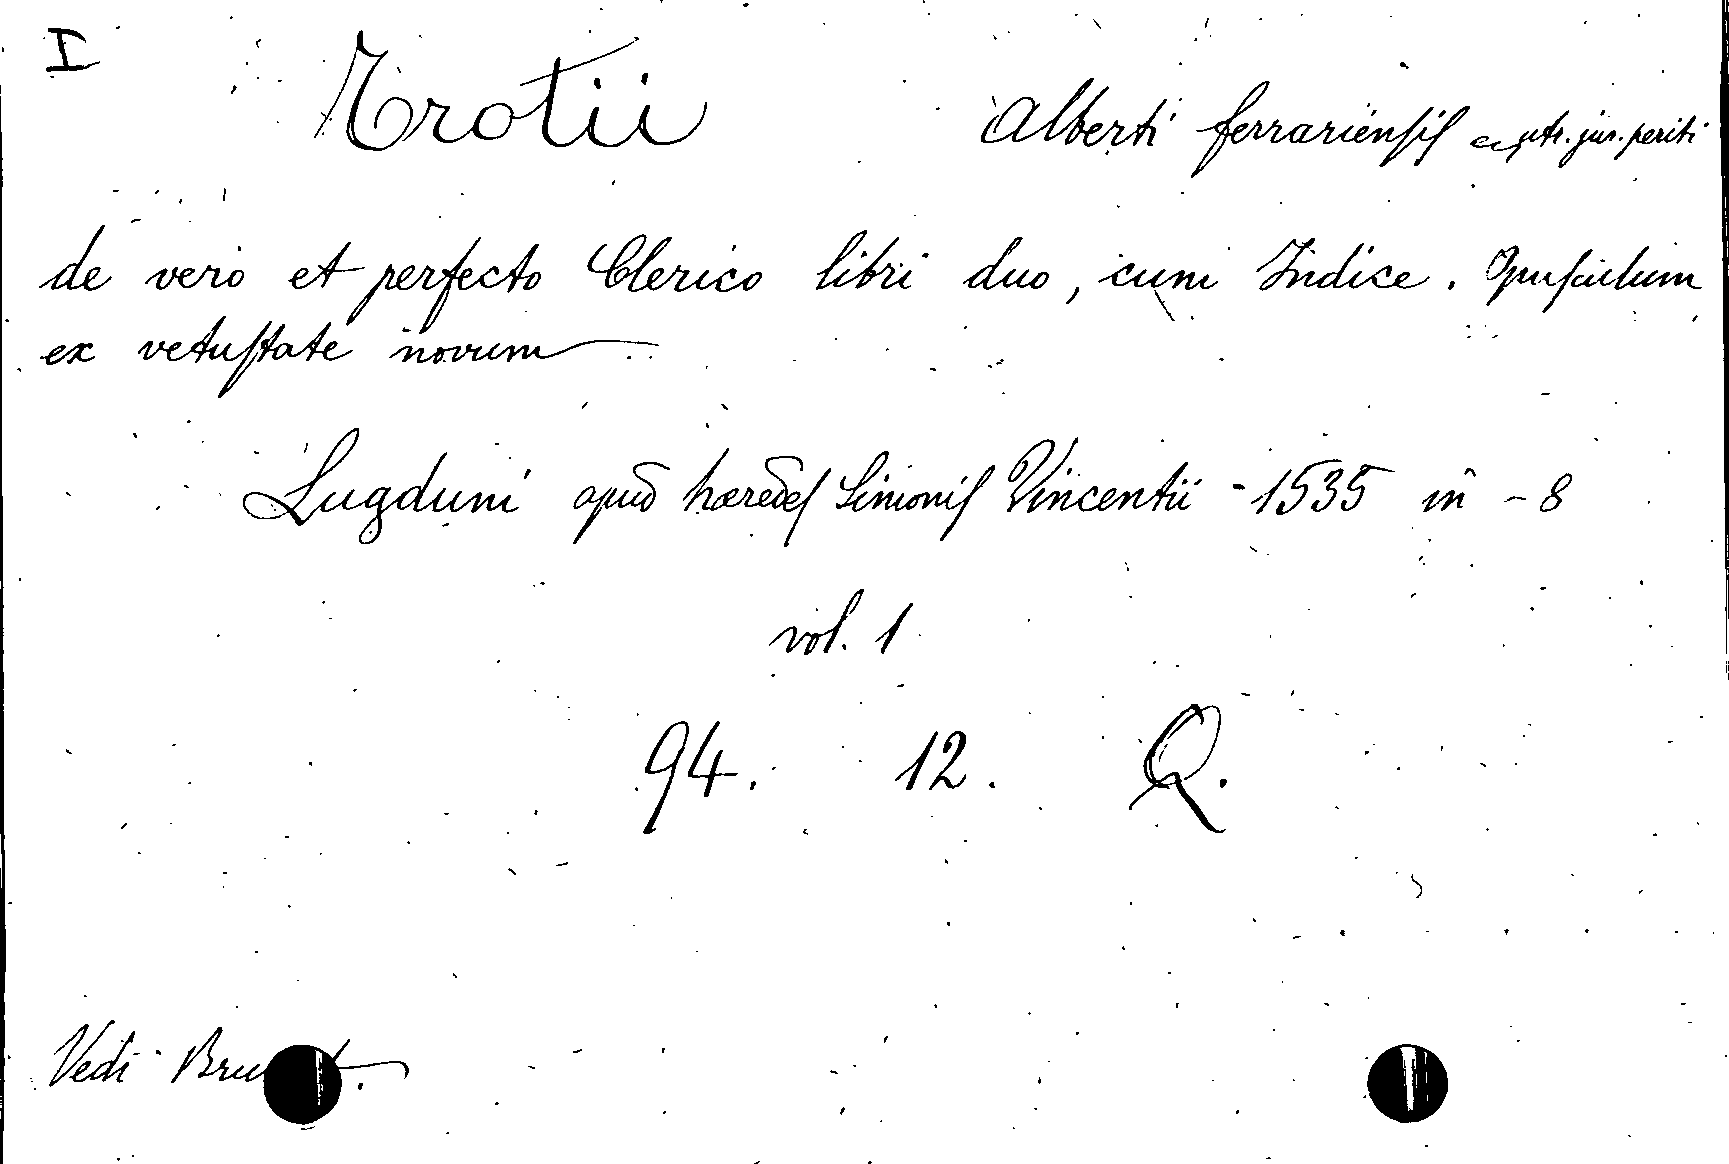 I
Trotii Alberti ferrariensis utr. jur. periti
de vero et perfecto Clerico libri duo, cum Indice. Opusculum
ex vetustate novum
Lugduni apud hæredes Simonis Vincentii - 1535 in - 8
vol. 1
94. 12. Q.
Vedi